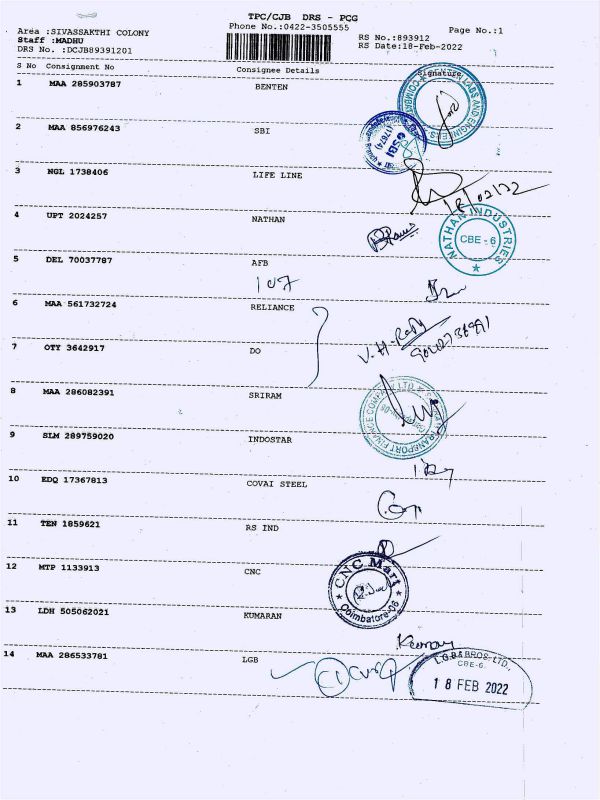 TPC/CJB DRS - PCG
Area :SIVASSAKTHI COLONY Phone No.:0422-3505555 Page No.:1
Staff :MADHU RS No.:893912
DRS No. :DCJB89391201 RS Date:18-Feb-2022
S No Consignment No Consignee Details Signature
1 MAA 285903787 BENTEN
2 MAA 856976243 SBI
3 NGL 1738406 LIFE LINE
18/02/22
4 UPT 2024257 NATHAN
NATHAN INDUSTRIES
CBE - 6
5 DEL 70037787 AFB
6 MAA 561732724 RELIANCE
7 OTY 3642917 DO
8 MAA 286082391 SRIRAM
9 SLM 289759020 INDOSTAR
10 EDQ 17367813 COVAI STEEL
11 TEN 1859621 RS IND
12 MTP 1133913 CNC
CNC Mart
Coimbatore-06
13 LDH 505062021 KUMARAN
14 MAA 286533781 LGB
L.G.B & BROS. LTD.,
CBE-6.
18 FEB 2022